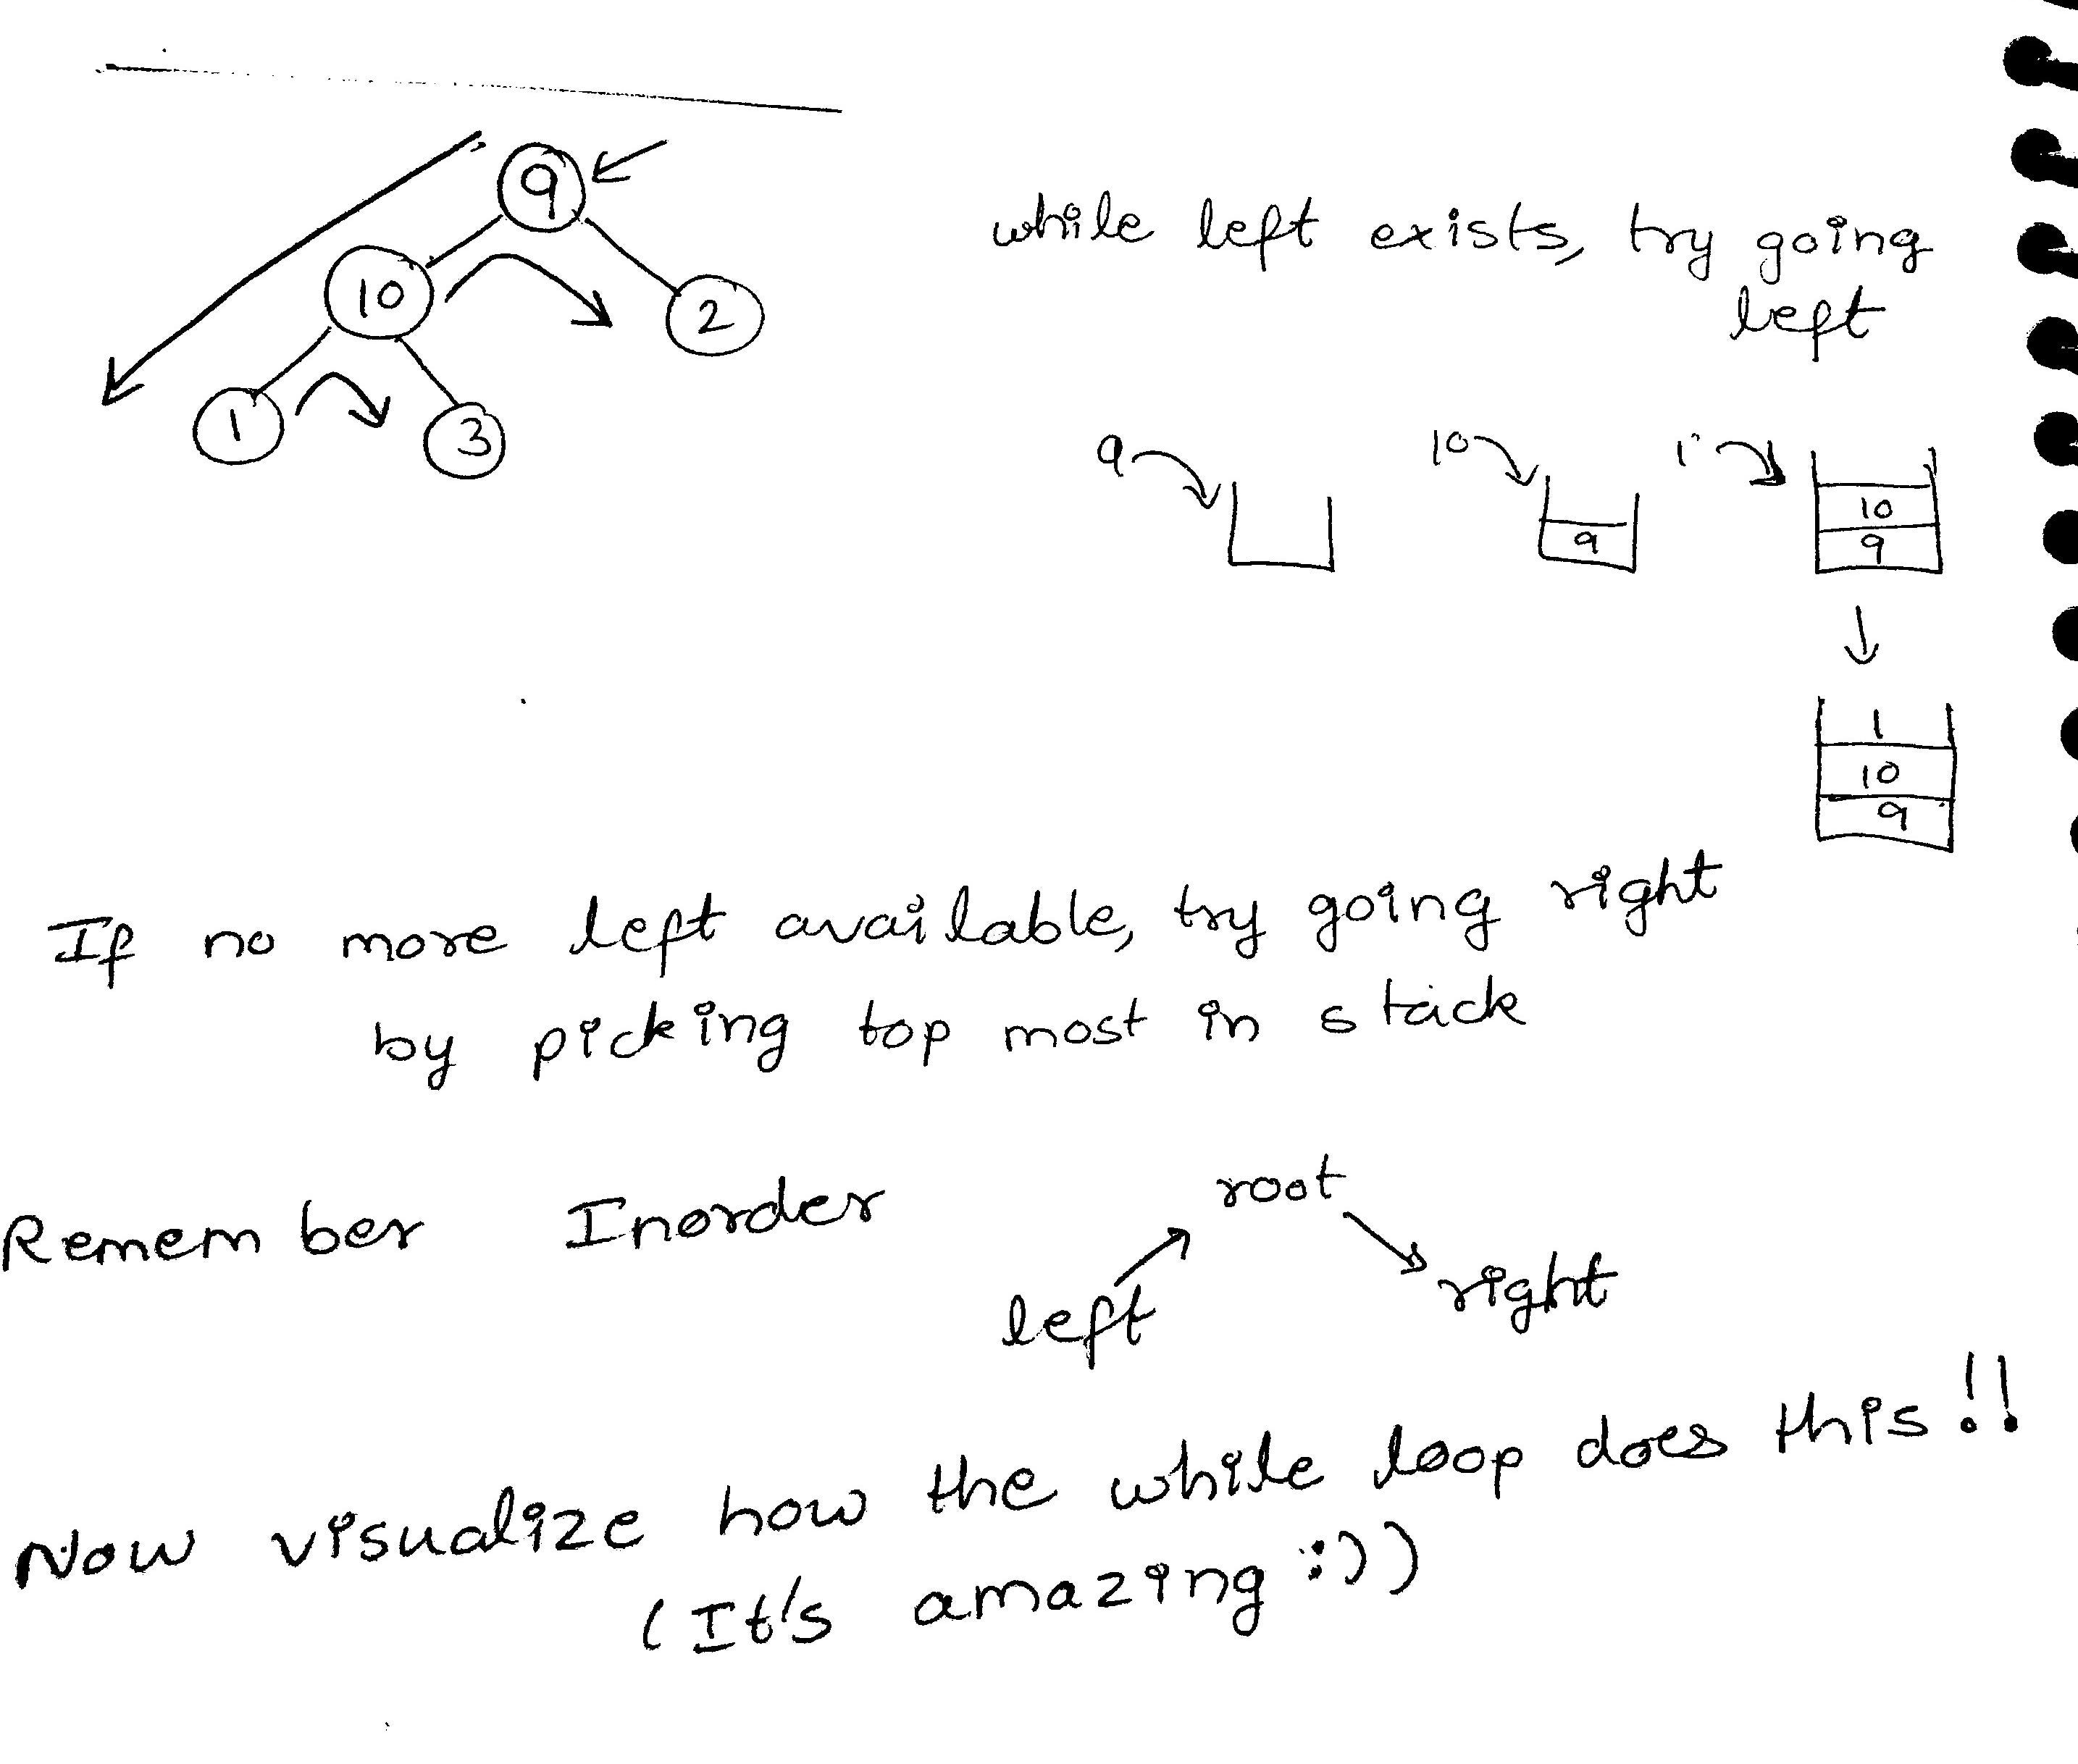 9
10
2
1
3
while left exists, try going
left
9
10
9
1
10
9
1
10
9
If no more left available, try going right
by picking top most in stack
Remember Inorder
root
left
right
Now visualize how the while loop does this!!
(It's amazing :))